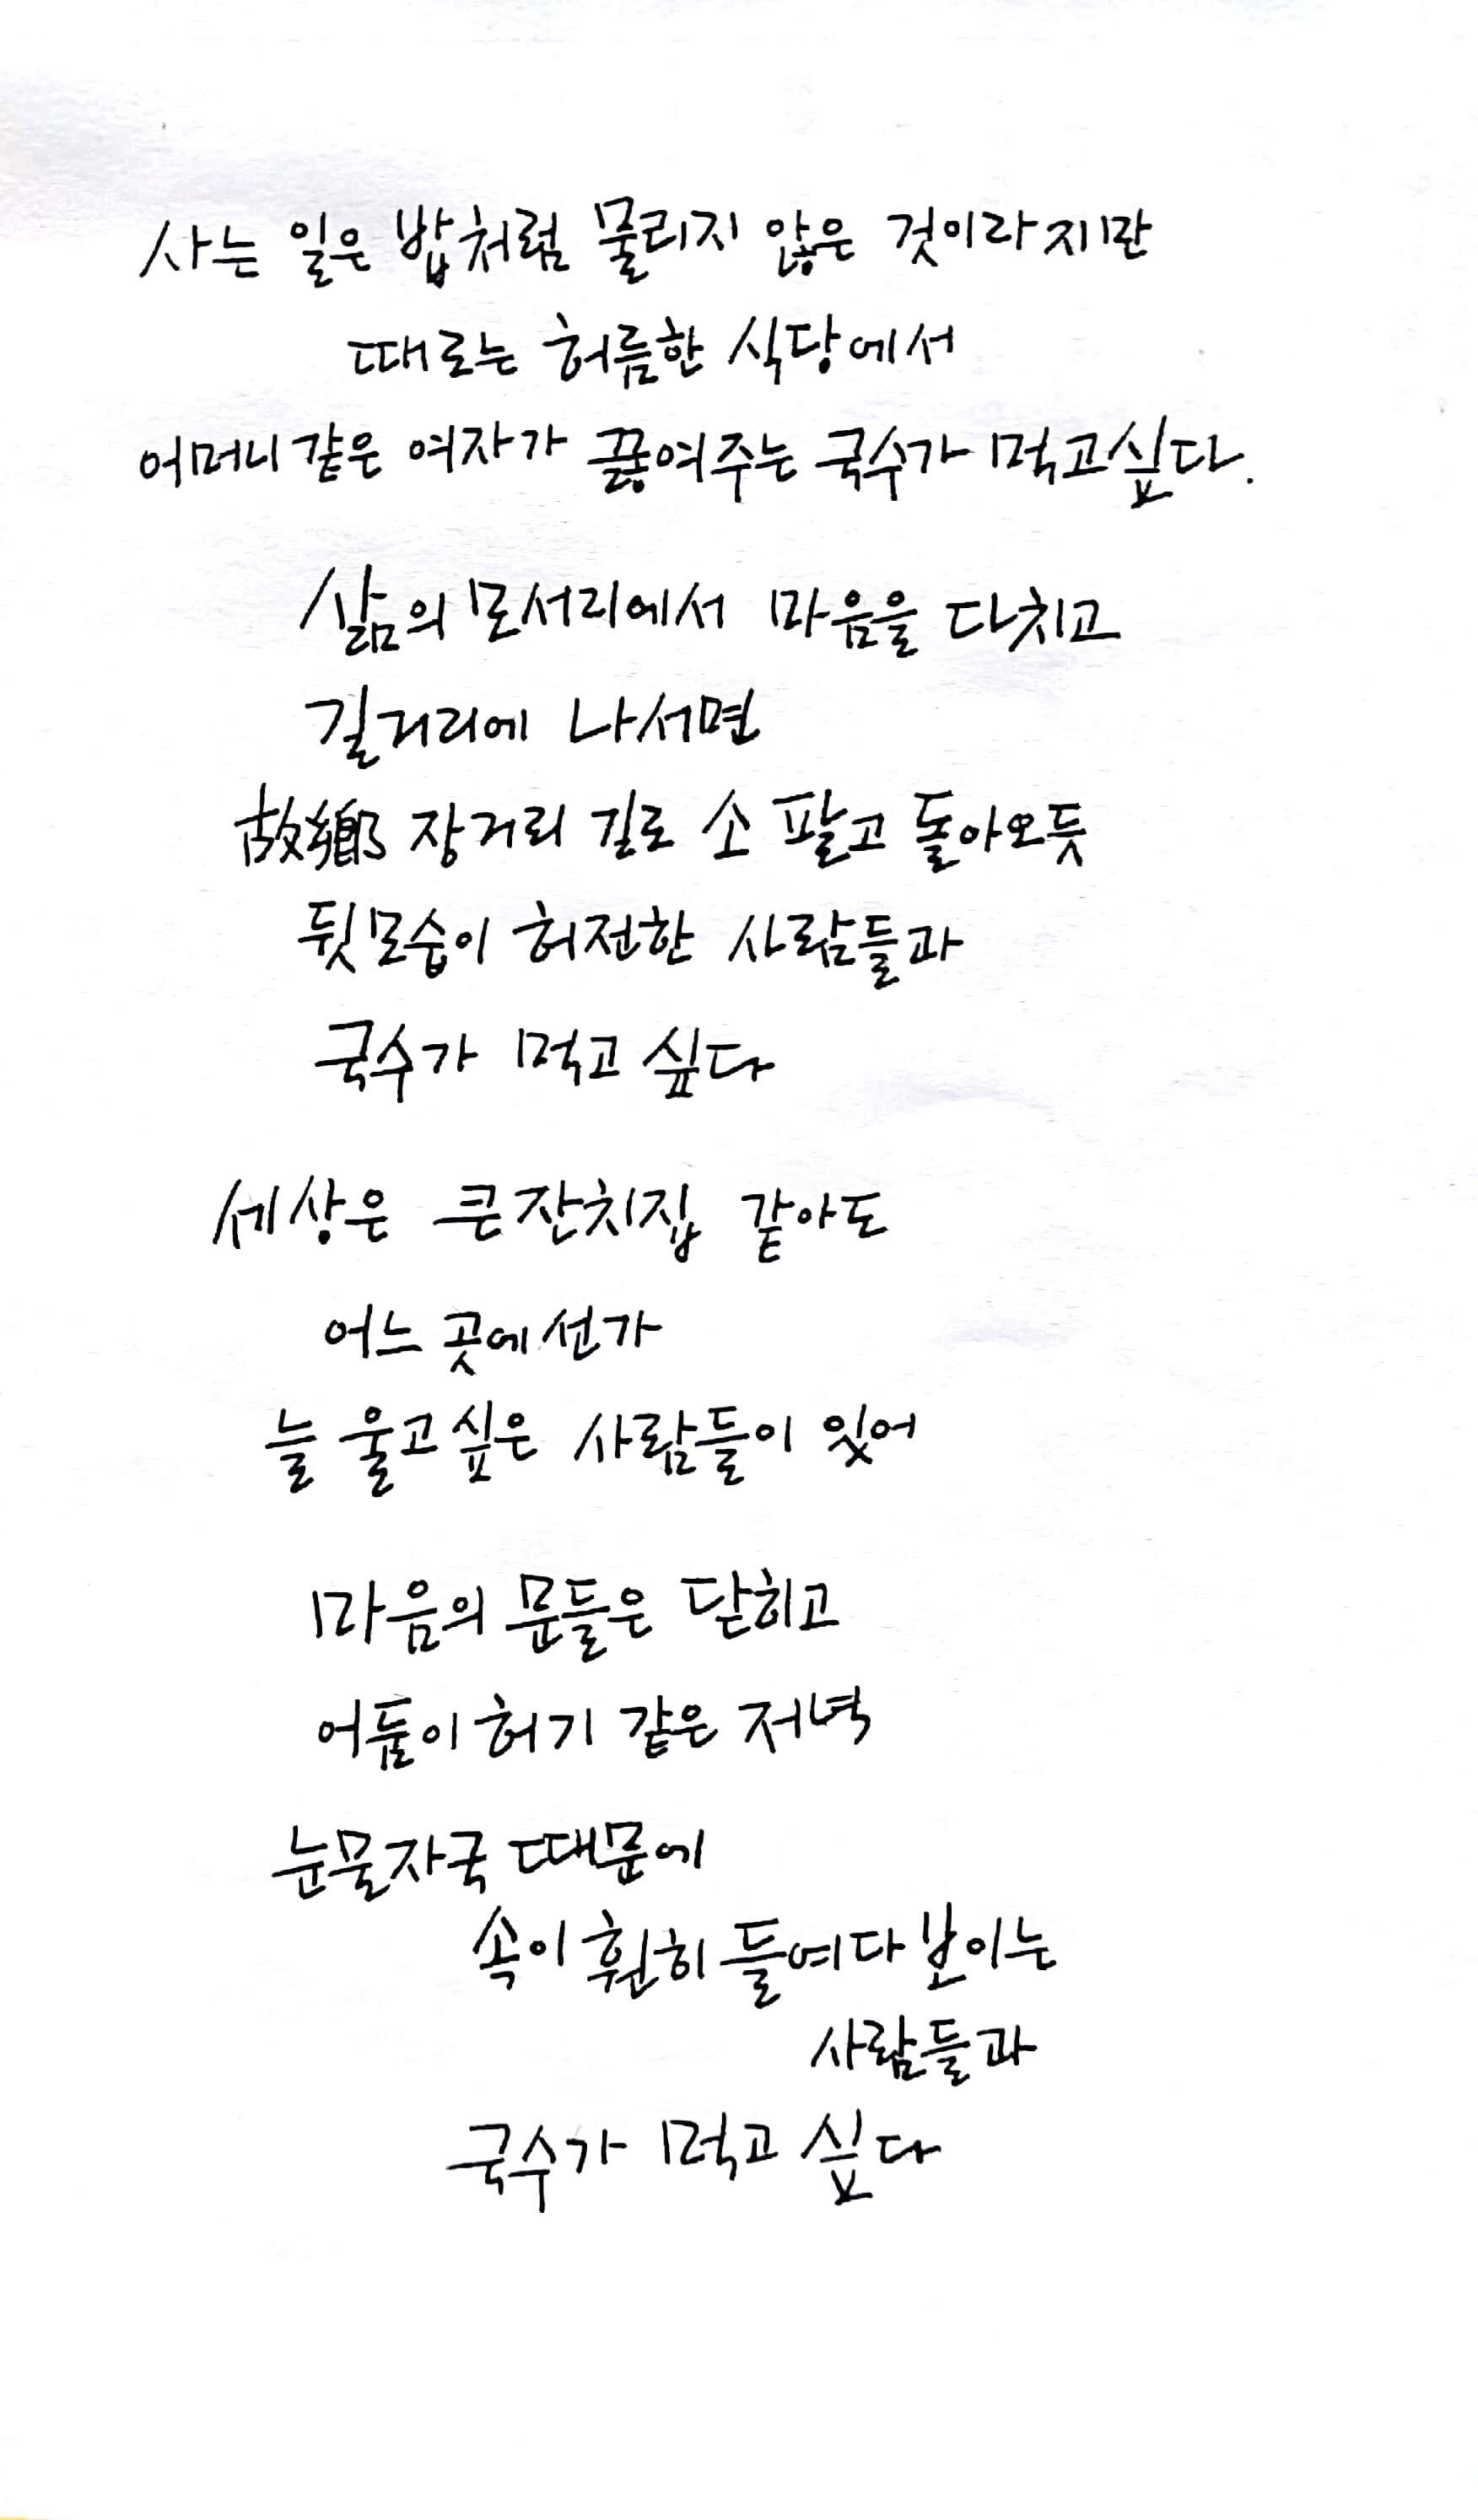 사는 일은 밥처럼 물리지 않은 것이라지만
때로는 허름한 식당에서
어머니 같은 여자가 끓여주는 국수가 먹고싶다.
삶의 모서리에서 마음을 다치고
길거리에 나서면
故鄕 장거리 길로 소 팔고 돌아오듯
뒷모습이 허전한 사람들과
국수가 먹고 싶다
세상은 큰 잔치집 같아도
어느 곳에선가
늘 울고싶은 사람들이 있어
마음의 문들은 닫히고
어둠이 허기 같은 저녁
눈물자국 때문에
속이 훤히 들여다 보이는
사람들과
국수가 먹고 싶다